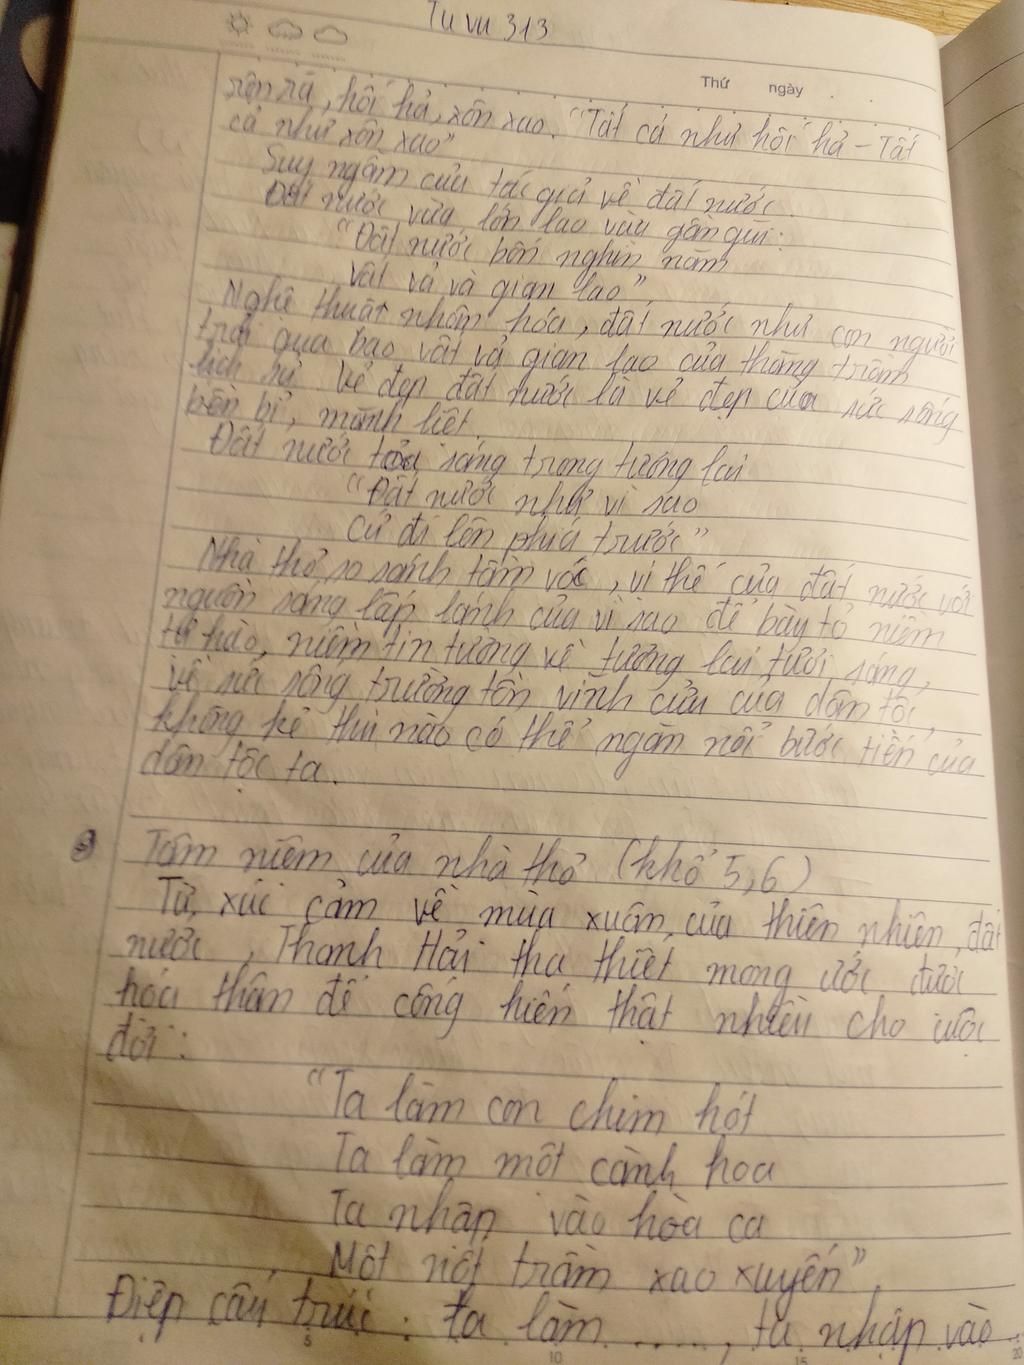 Tu vu 313
Thứ ngày
rộn rã, hối hả, xôn xao. "Tất cả như hối hả - Tất
cả như xôn xao"
Suy ngẫm của tác giả về đất nước.
Đất nước vừa lớn lao vừa gần gũi:
"Đất nước bốn nghìn năm
Vất vả và gian lao"
Nghệ thuật nhân hóa, đất nước như con người
trải qua bao vất vả gian lao của thăng trầm
lịch sử. Vẻ đẹp đất nước là vẻ đẹp của sức sống
bền bỉ, mãnh liệt.
Đất nước tỏa sáng trong tương lai
"Đất nước như vì sao
Cứ đi lên phía trước"
Nhà thơ so sánh tầm vóc, vị thế của đất nước với
nguồn sáng lấp lánh của vì sao để bày tỏ niềm
tự hào, niềm tin tưởng về tương lai tươi sáng,
về sức sống trường tồn vĩnh cửu của dân tộc,
không kẻ thù nào có thể ngăn nổi bước tiến của
dân tộc ta.
3 Tâm niệm của nhà thơ (khổ 5,6)
Từ xúc cảm về mùa xuân của thiên nhiên, đất
nước, Thanh Hải tha thiết mong ước được
hóa thân để cống hiến thật nhiều cho cuộc
đời:
"Ta làm con chim hót
Ta làm một cành hoa
Ta nhập vào hòa ca
Một nốt trầm xao xuyến".
Điệp cấu trúc: ta làm ....., ta nhập vào ..
5 10 15 20